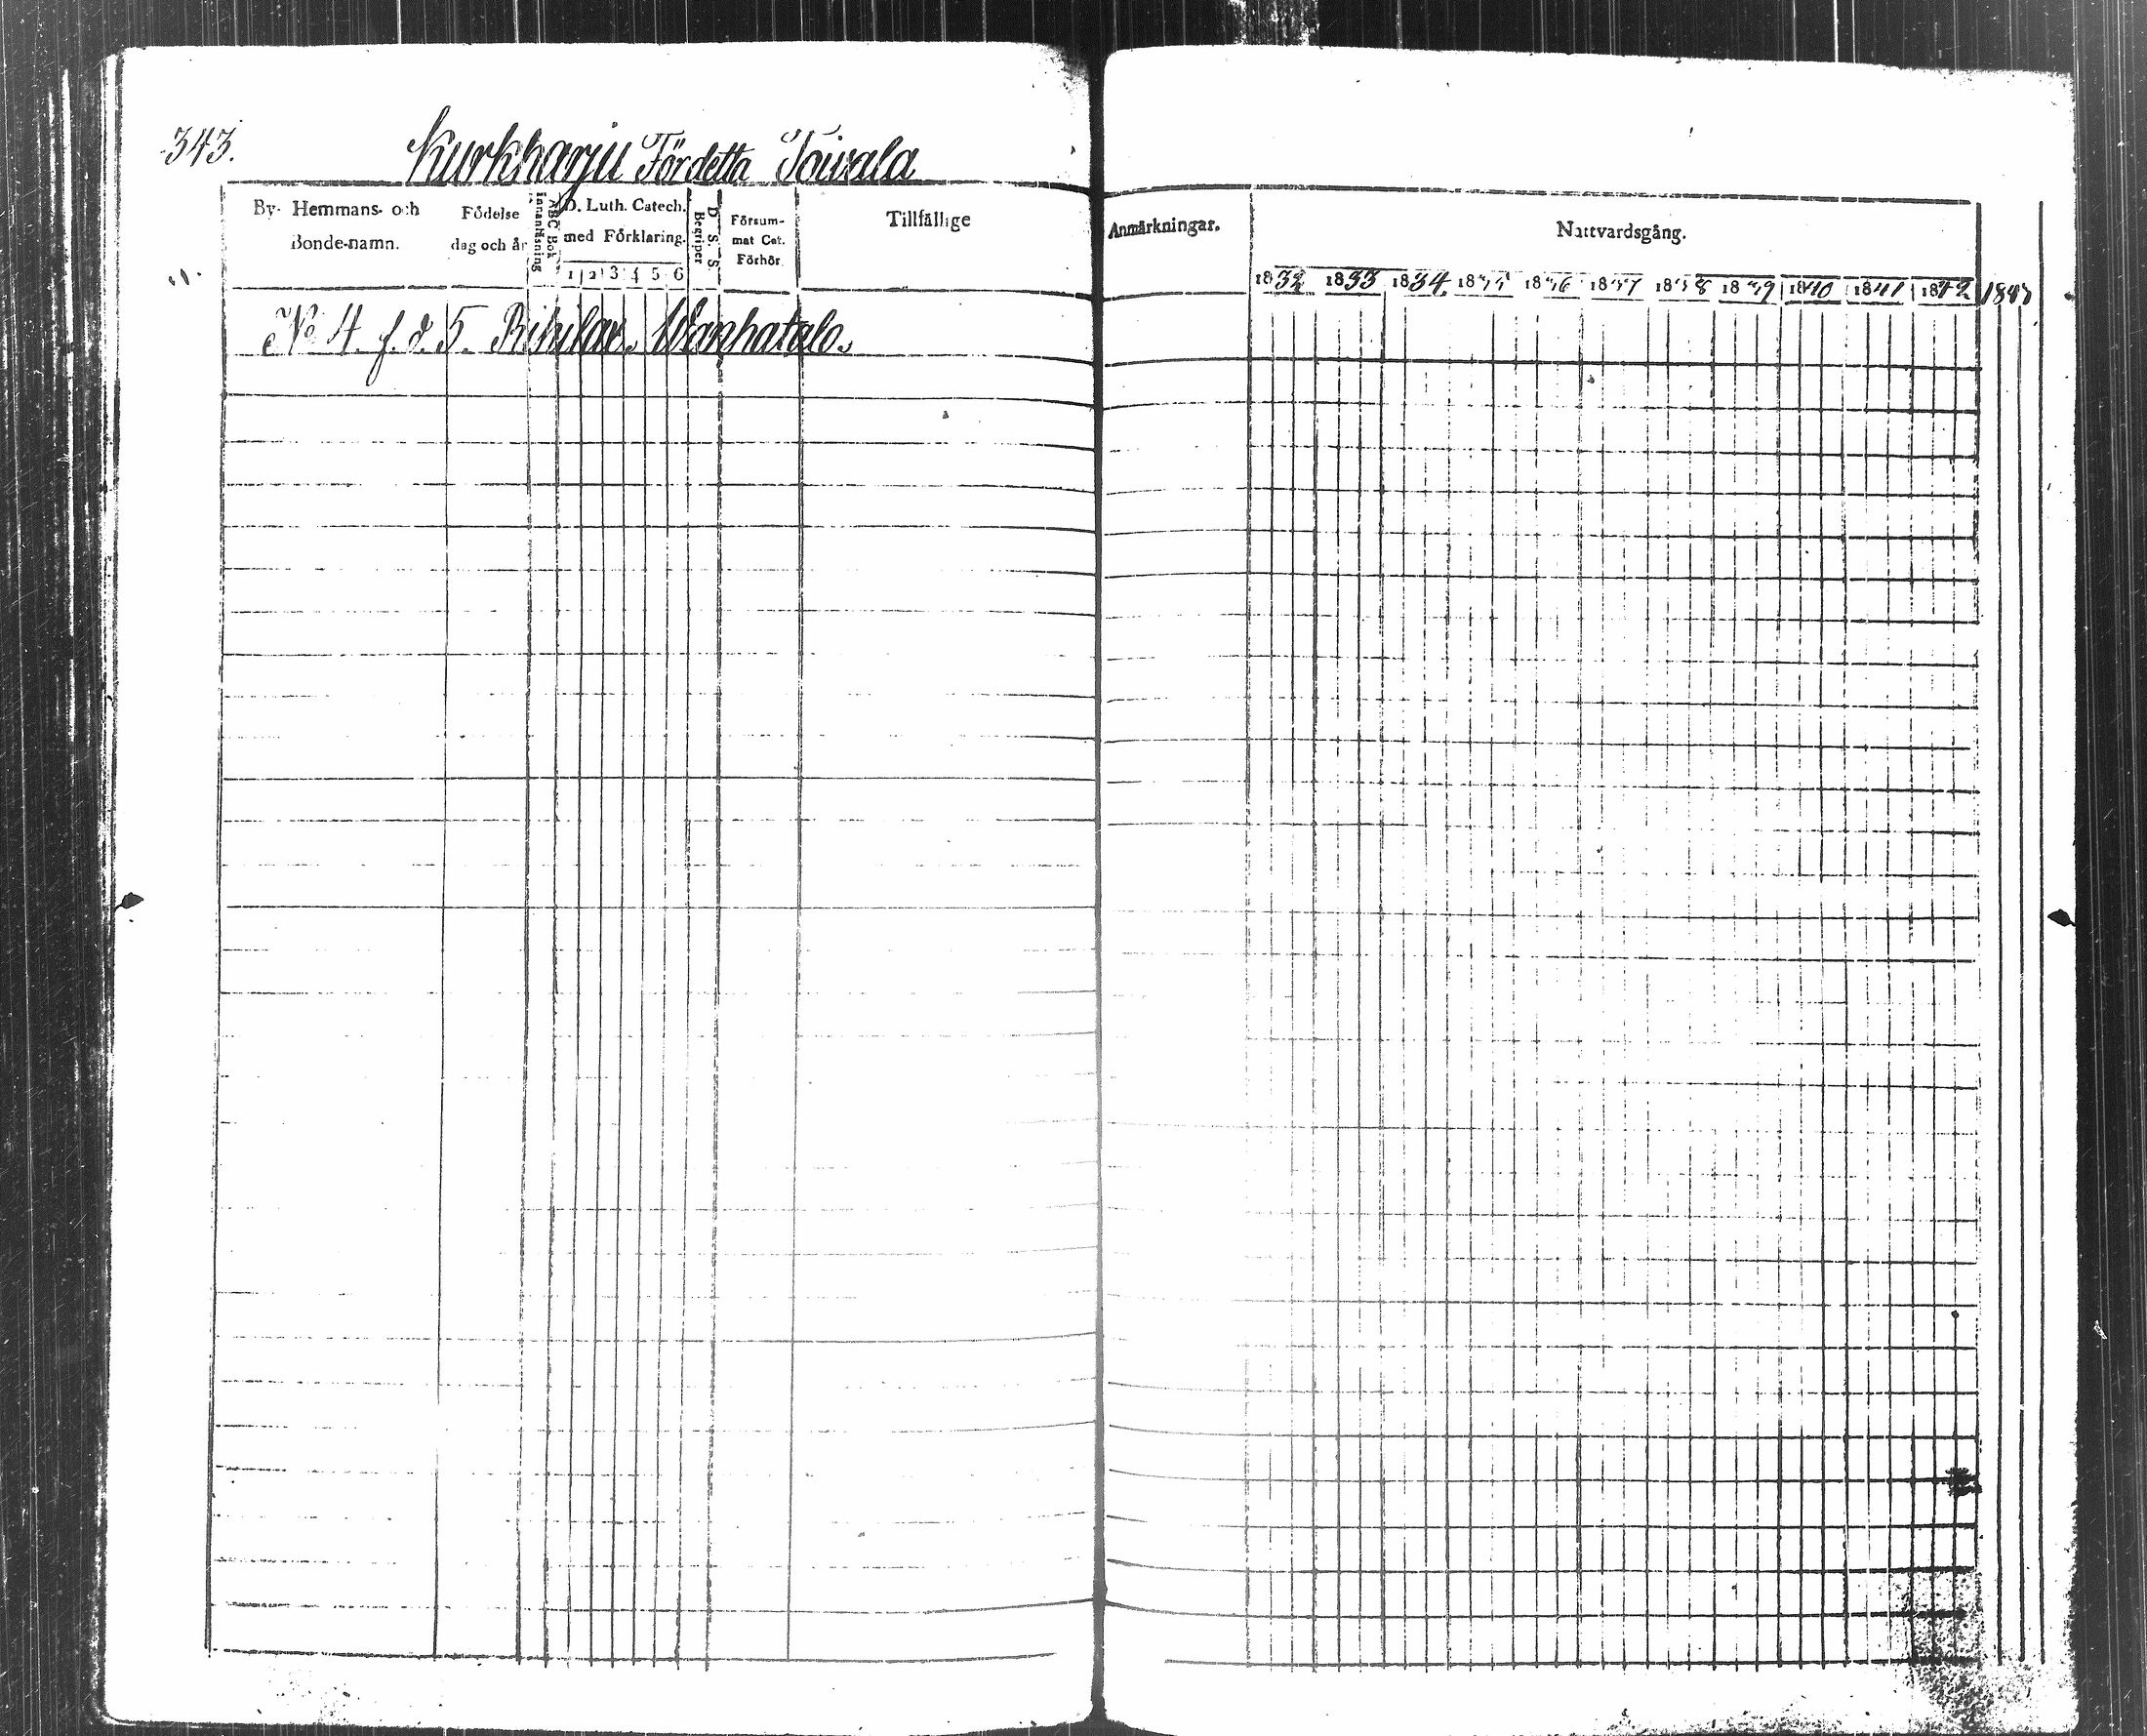 343.
Kurkharju Fördetta Toivala
By- Hemmans- och
Bonde-namn.
Födelse
dag och år
Innanläsning
ABC Bok
D. Luth. Catech.
med Förklaring.
1 2 3 4 5 6
Begriper
D. S. S.
Försum-
mat Cat.
Förhör
Tillfällige
Anmärkningar.
Nattvardsgång.
1832 1833 1834 1835 1836 1837 1838 1839 1840 1841 1842 1843
No 4. f. d. 5. Wanhatalo.